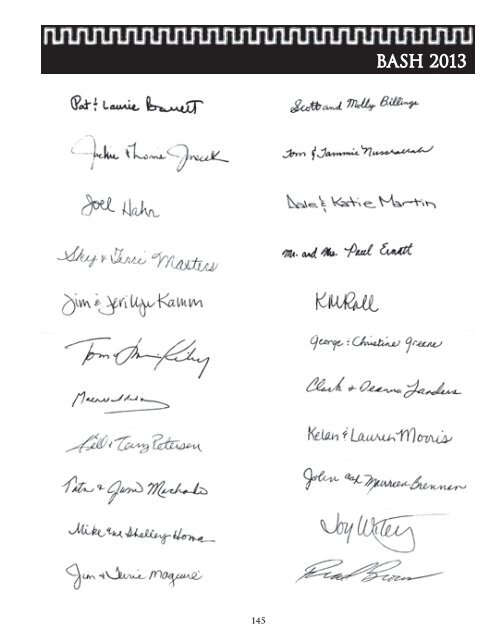 BASH 2013
Pat & Laurie Barrett
Jackie &
Joel Hahn
Sky & Terri Masters
Jim & Jerilyn Kamm
Tom &
Bill & Terry Petersen
Pete & June Machado
Mike and Shelley Homa
Jim & Terrie Maguire
Scott and Molly Billings
Tom & Tammie
Dale & Katie Martin
Mr. and Mrs. Paul
KMRall
George & Christine Greene
Clark & Deanna Landers
Kelan & Lauren Morris
John and Maureen Brennan
Joy Utley
Brad Brown
145